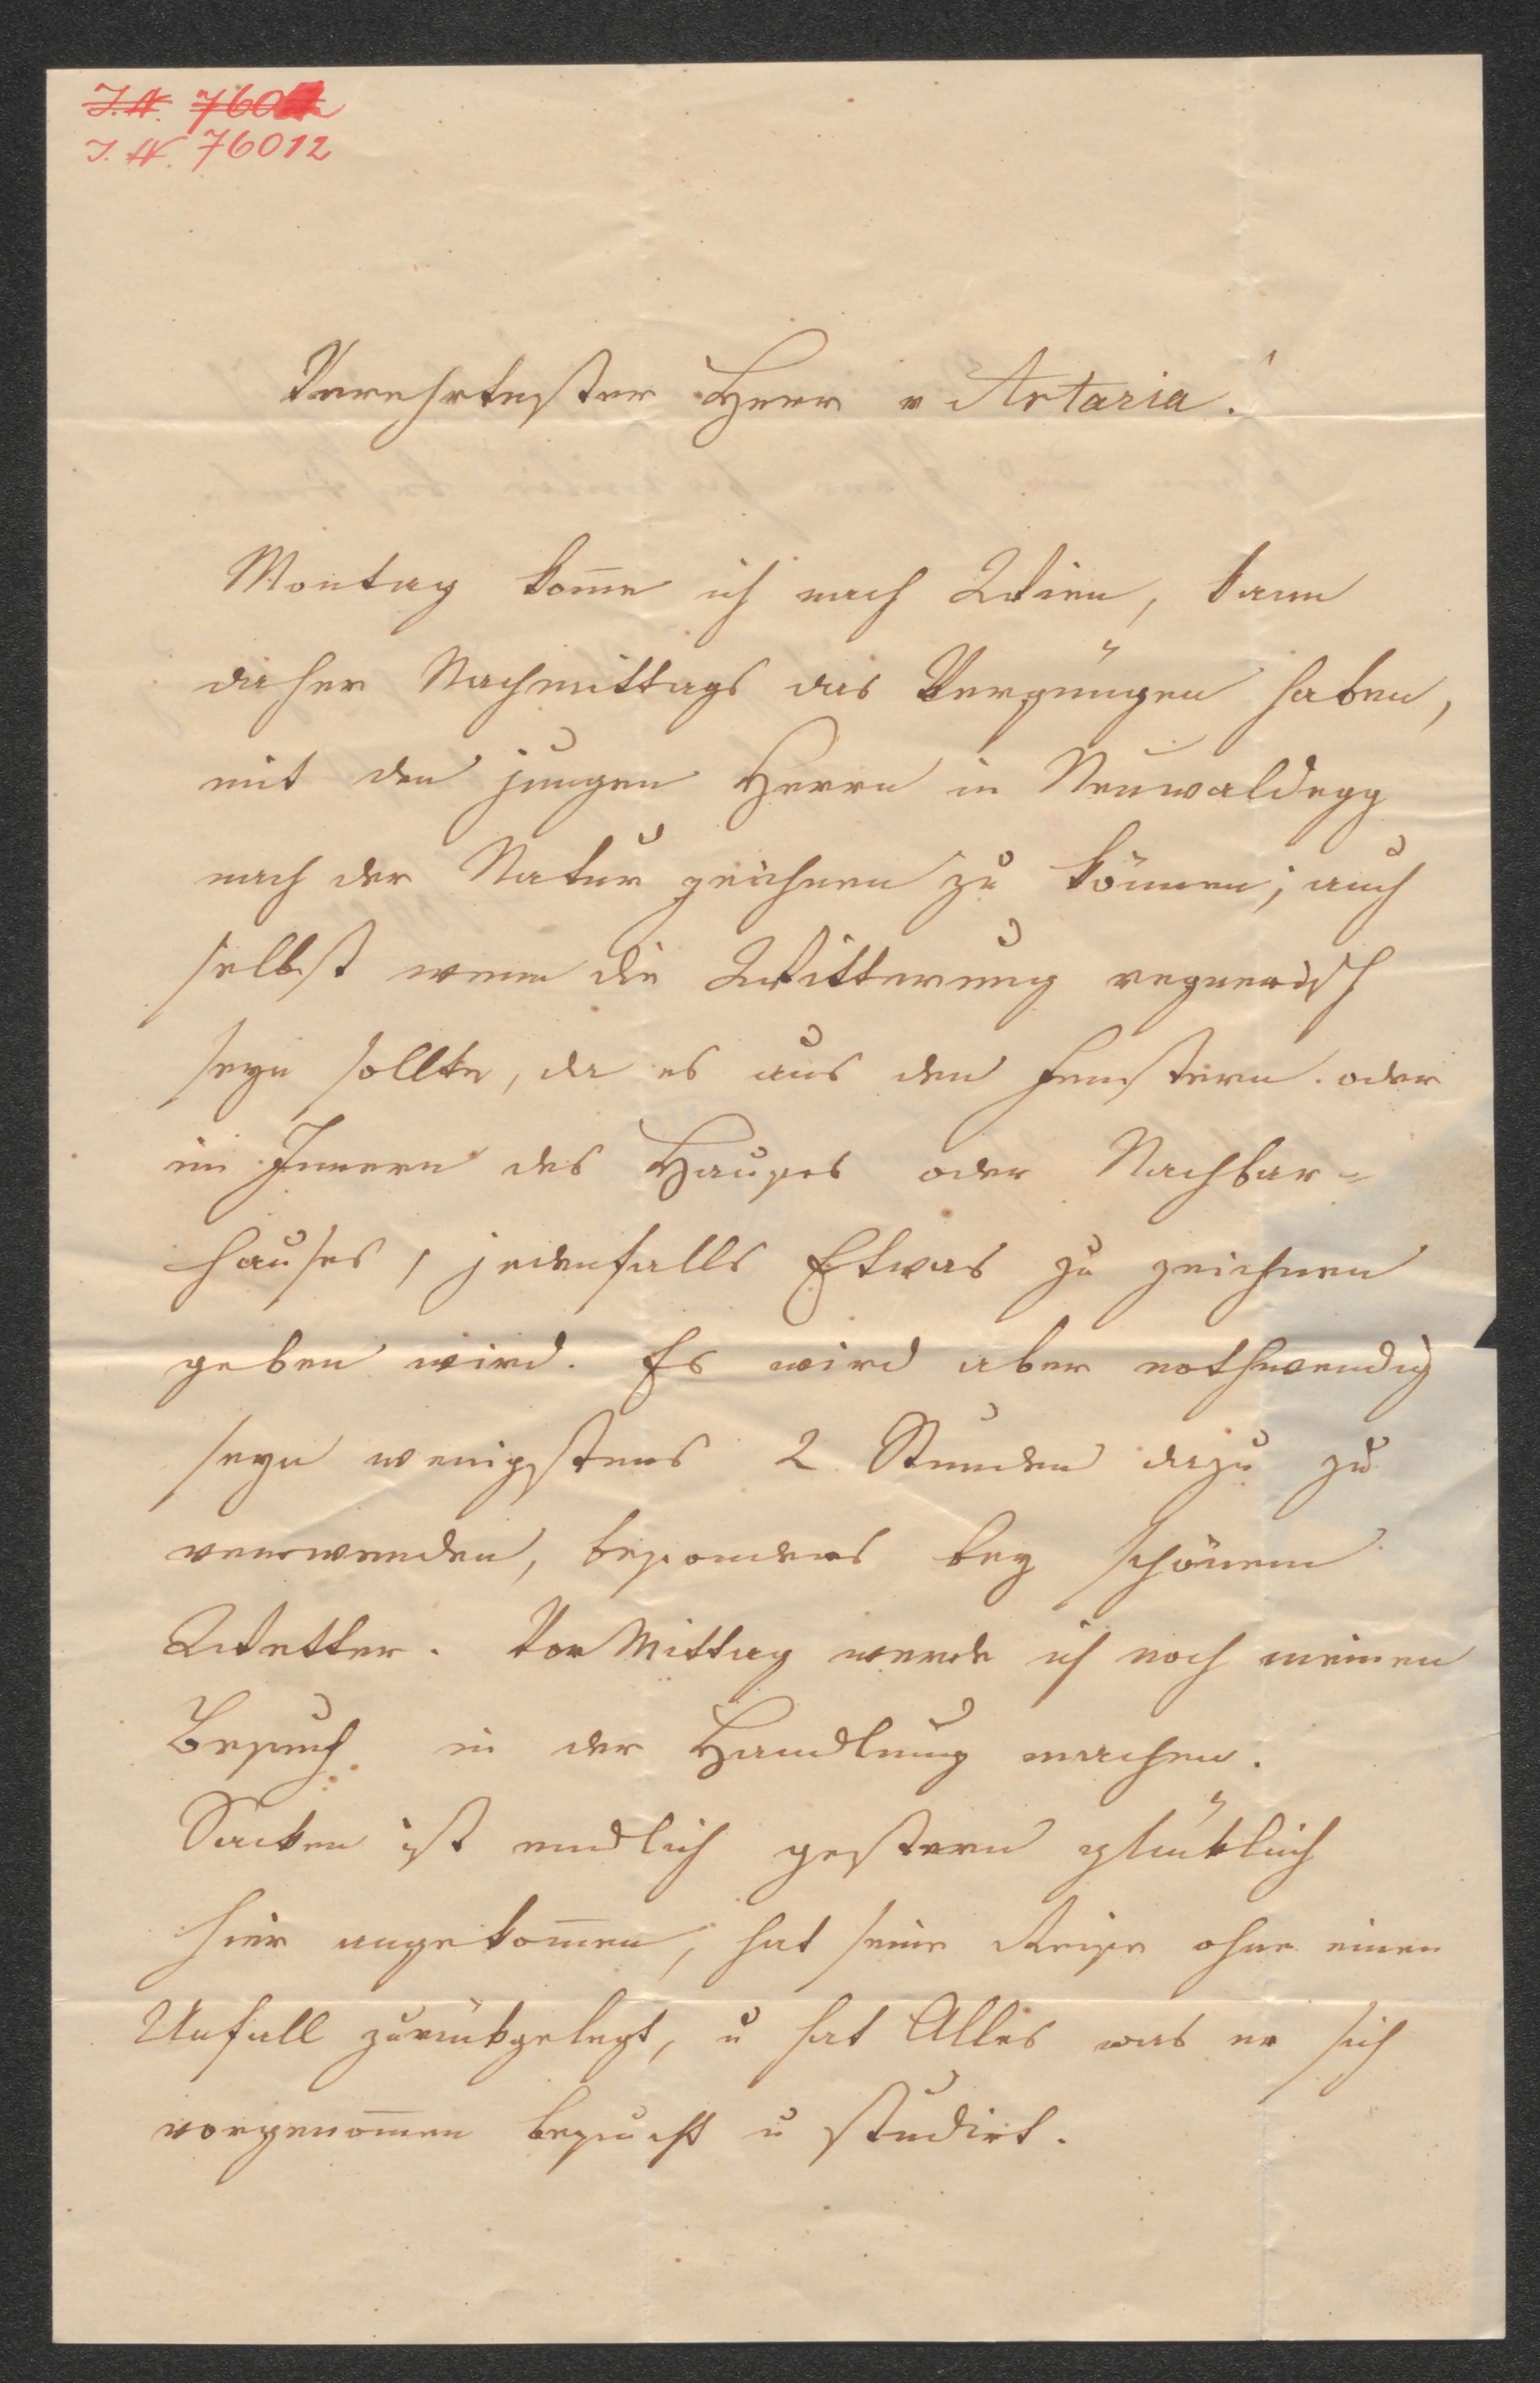 I. N. 760
I. N. 76012
Verehrtester Herr v Artaria!
Montag kom̅e ich nach Wien, kann
daher Nachmittags das Vergnügen haben,
mit den jungen Herrn in Neuwaldegg
nach der Natur zeichnen zu können; auch
selbst wenn die Witterung regnerisch
seyn sollte, da es aus den Fenstern oder
im Innern des Hauses oder Nachbar-
hauses, jedenfalls Etwas zu zeichnen
geben wird. Es wird aber nothwendig
seyn wenigstens 2 Stunden dazu zu
verwenden, besonders bey schönem
Wetter. Vor Mittag werde ich noch meinen
Besuch in der Handlung machen.
Sacken ist endlich gestern glüklich
hier angekom̅en, hat seine Reise ohne einen
Unfall zurükgelegt, u hat Alles was er sich
vorgenom̅en besucht u studirt.